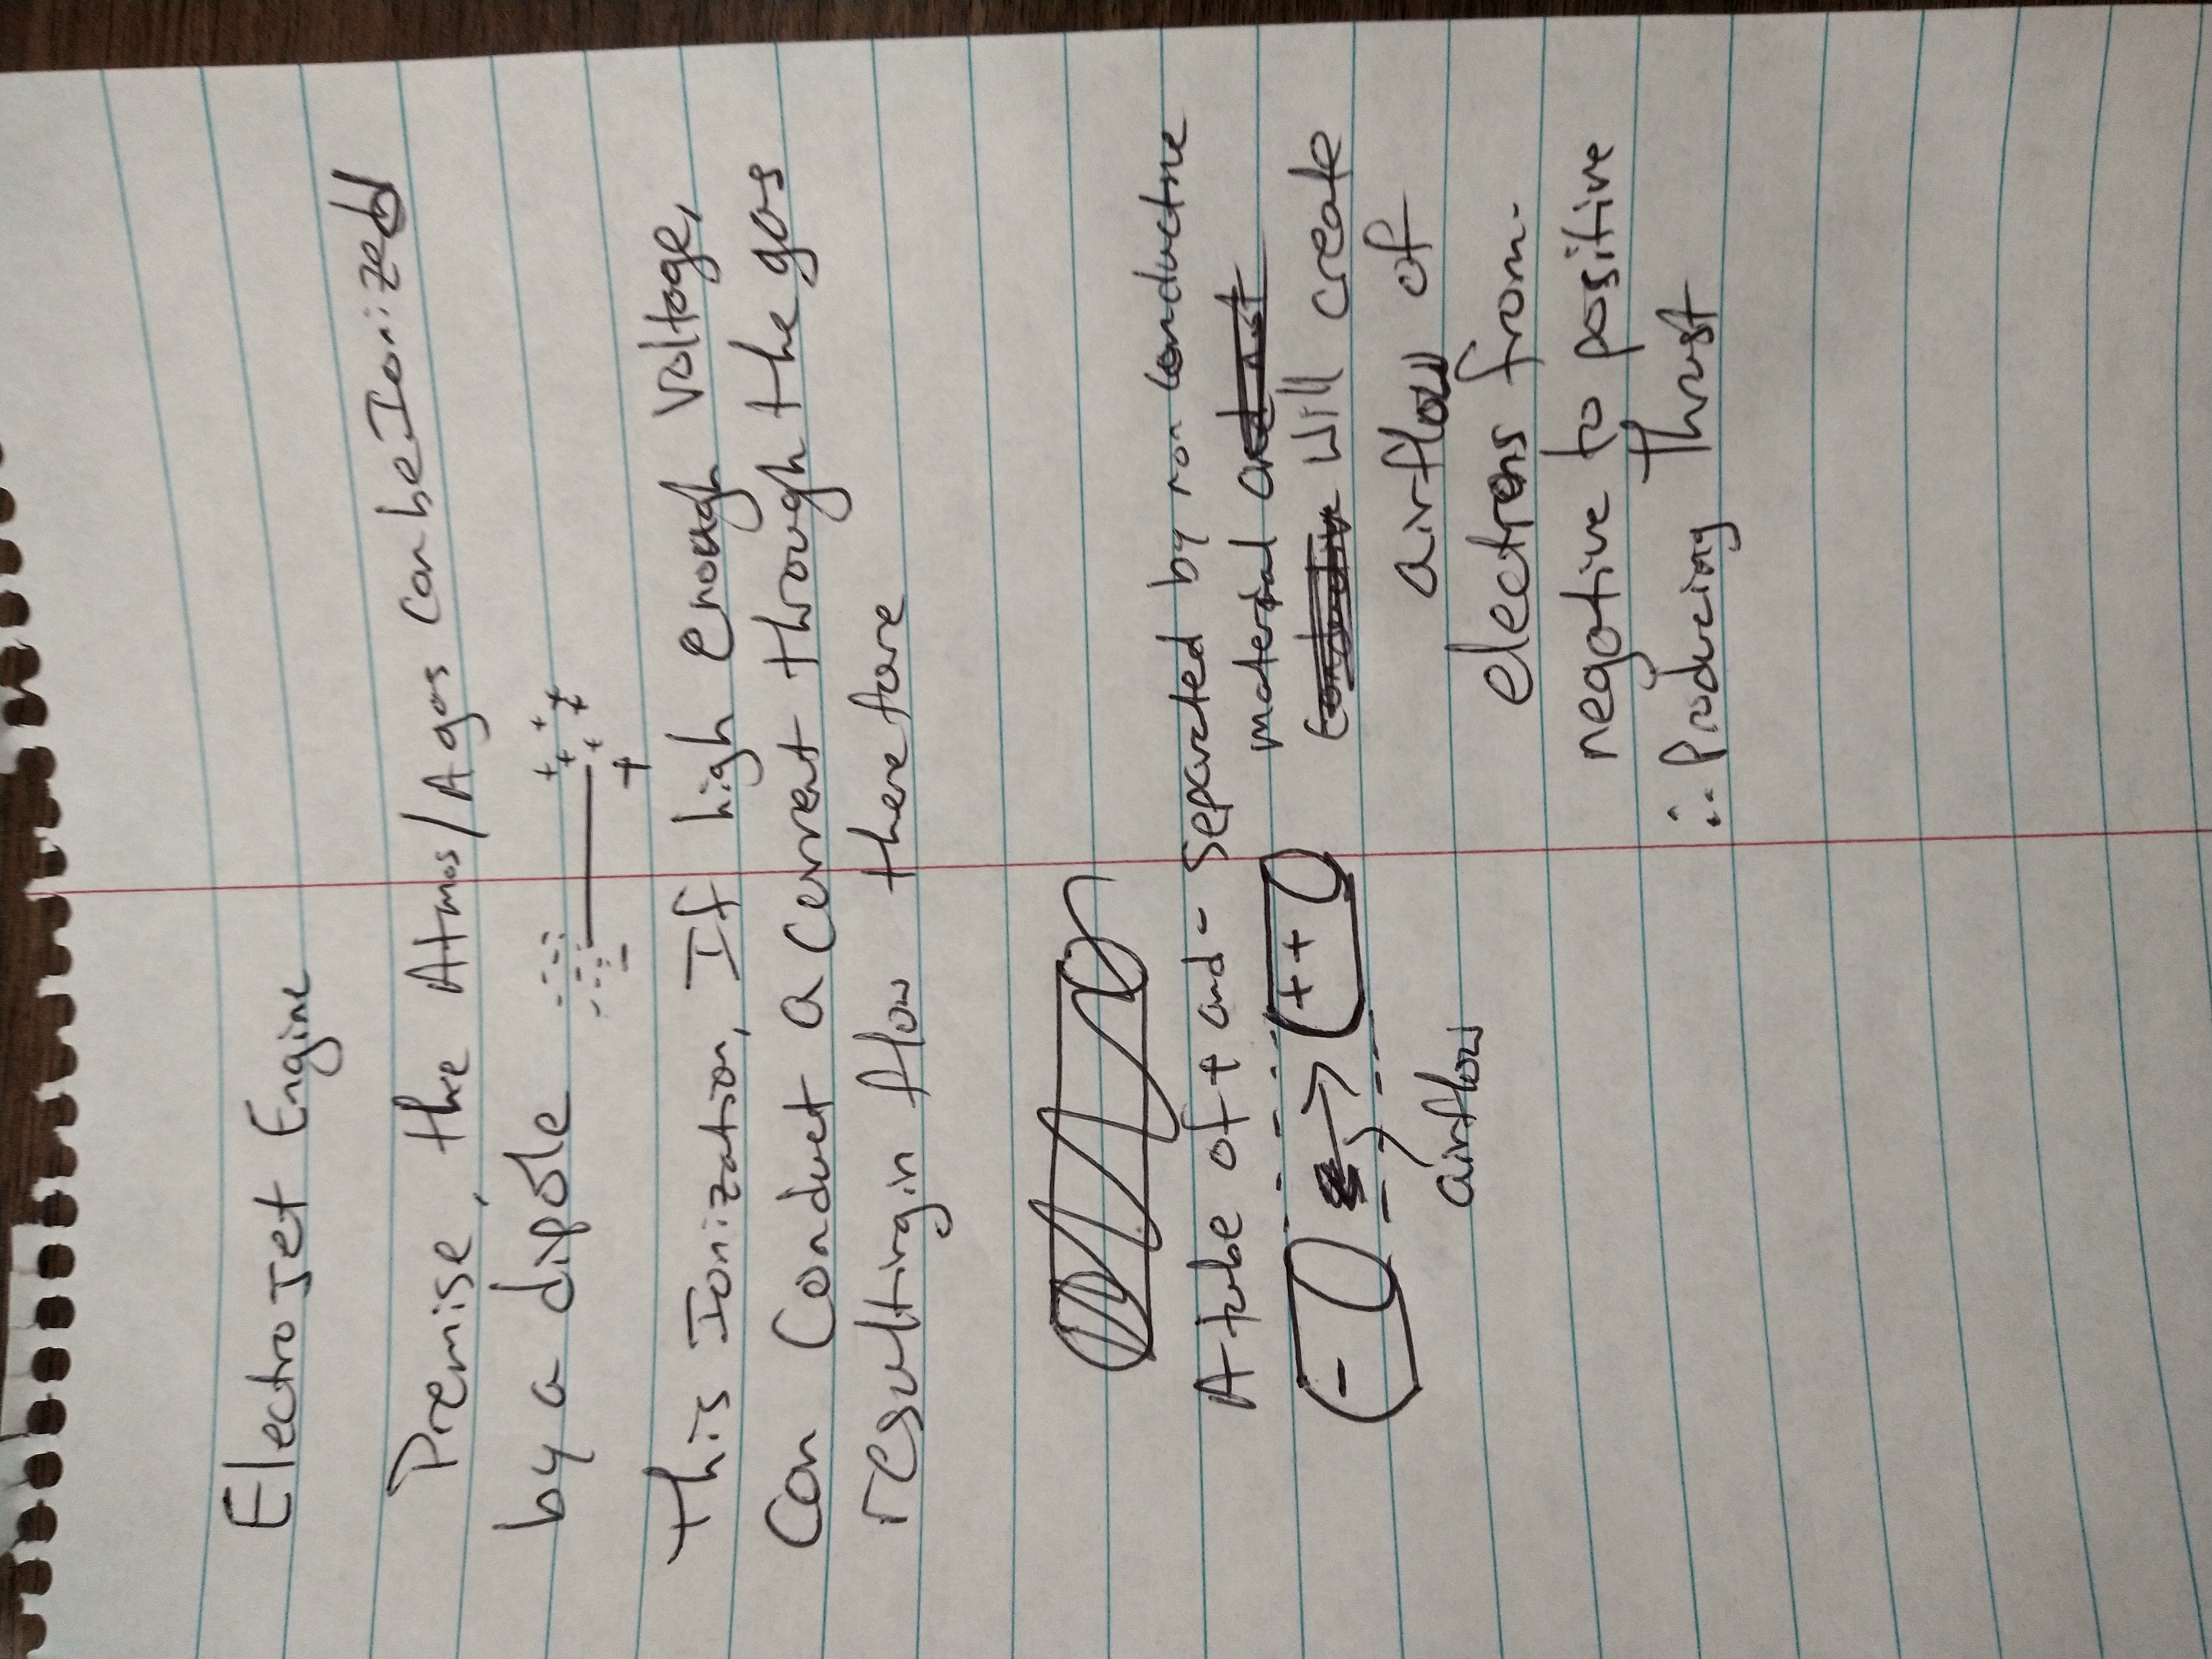 Electro Jet Engine
Premise, the Atmos/A gas can be Ionized
by a dipole
- +
This Ionization, If high enough Voltage,
Can Conduct a current through the gas
resulting in flow therefore
A tube of + and - Separated by non conductive
material
Will create
- ++
airflow of
airflow
electrons from
negative to positive
∴ Producing Thrust